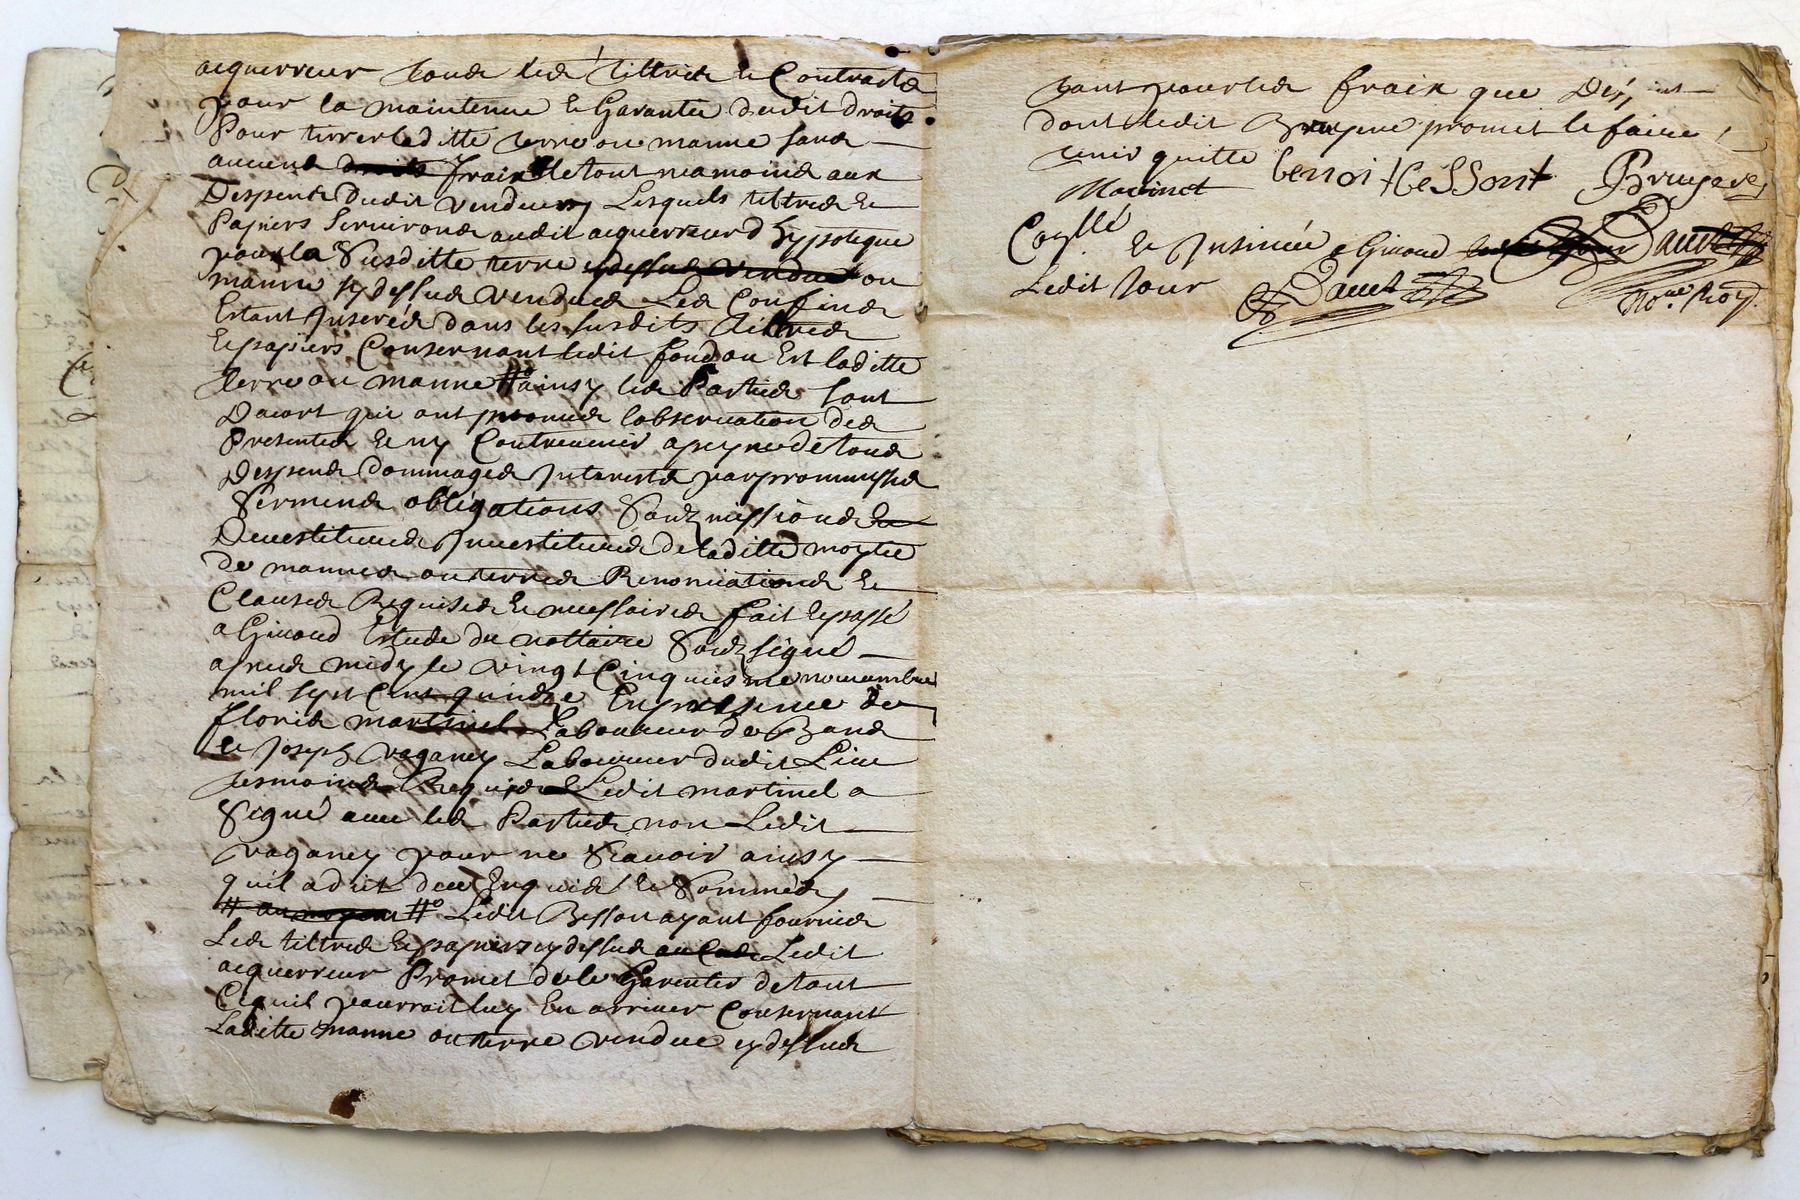 acquerreur tous les tiltres & Contracts
pour la maintenue & Garantie dudit droits
Pour tirer laditte terre ou manne sans
aucuns droits fraix le tout neamoins aux
Despents dudit vendeur Lesquels tiltres &
Papiers serviront audit acquerreur d'hypoteque
pour la Susditte terre cydessus vendue ou
manne cy dessus vendues Les Confins
Estant Inserés dans les susdits tiltres
& papiers Consernant ledit fond ou Est laditte
terre ou manne #o ainsy les Parties sont
Dacort qui ont promis lobservation des
Presentes & ny Contrevenir a peyne de tous
Despens Dommages Interests par promesses
Serments obligations Soubmissions &
Devestitures Investitures de laditte moytié
de mannes ou terres Renonciations &
Clauses Requises & necessaires fait & passé
a Givord Estude du nottaire Soubsigné
apres midy le vingt Cinquiesme novembre
mil sept Cent quinze En presence de
floris martinel Laboureur de Bans
& Joseph vaganey Laboureur dudit Lieu
tesmoins Requis Ledit martinel a
Signé avec les Parties non Ledit
vaganey pour ne Scavoir ainsy
quil a dit de ce Enquis & Sommés
# au moyen #o Ledit Besson ayant fournis
Les tiltres & papiers cy dessus au Cas Ledit
acquerreur Promet de le Garentir de tout
Ce quil pourrait luy En arriver Consernant
Laditte manne ou terre vendue cy dessus
tant pour les fraix que
dont ledit Bruyere promet le faire
tenir quitte benoit besson Bruyere
Martinel
Coll.é & Insinué a Givord
Ledit Jour
No.re Roy.